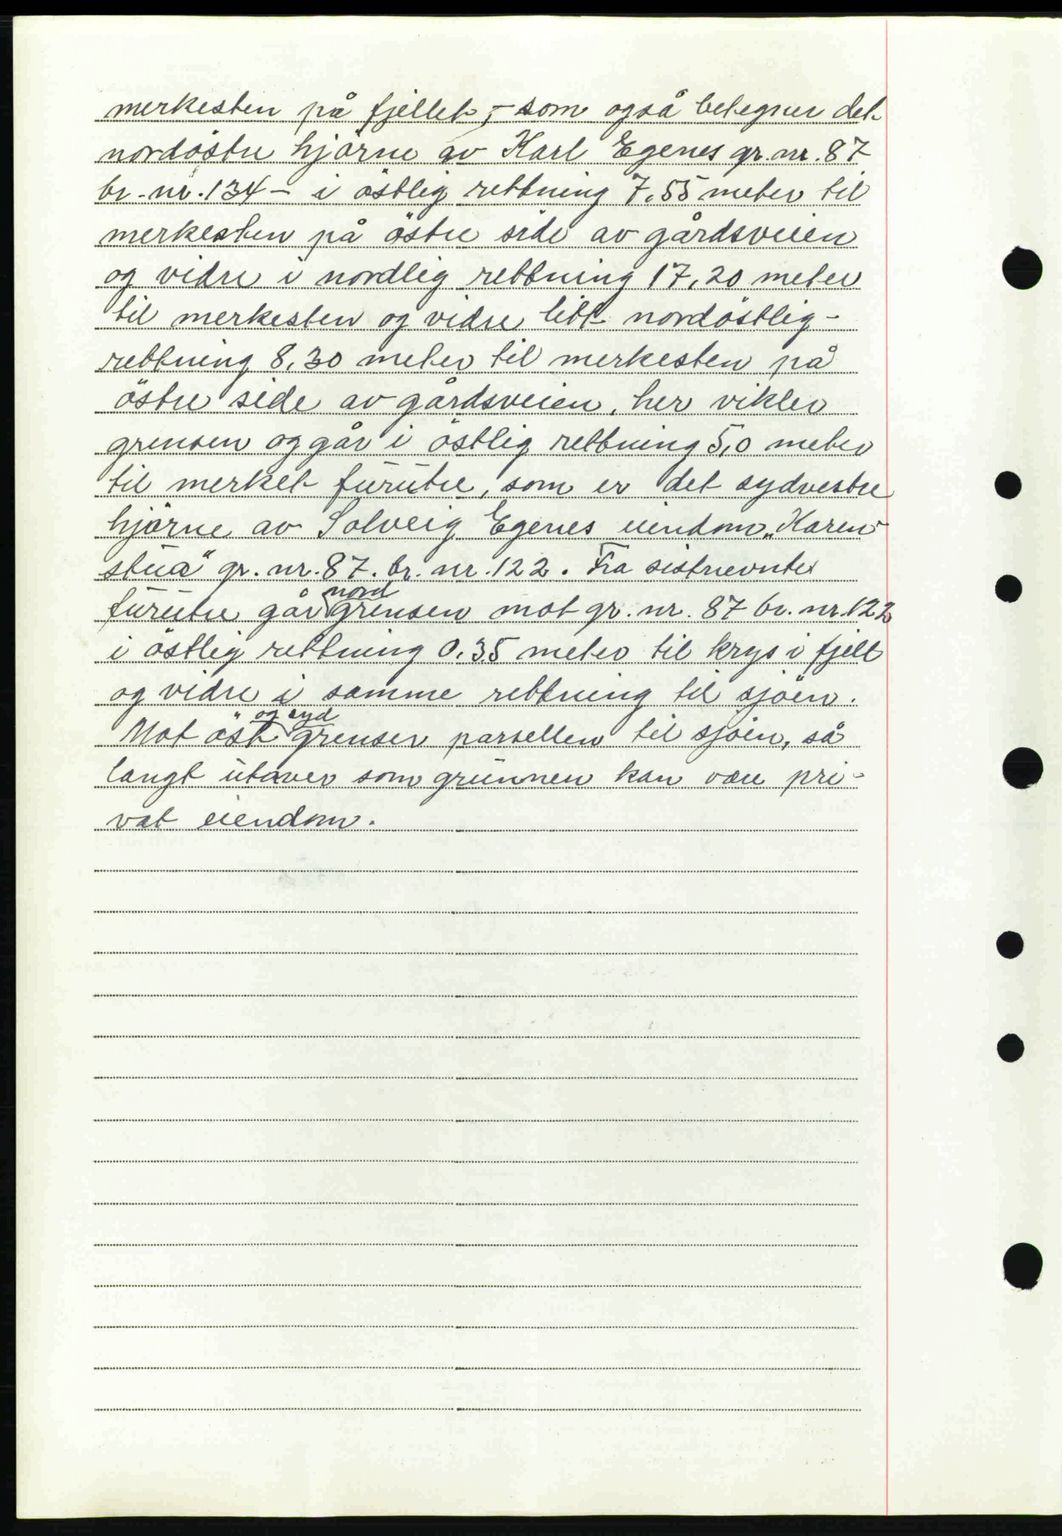 merkesten på fjellet, - som også betegner det
nordöstre hjörne av Karl Egenes gr. nr. 87
br. nr. 134 - i östlig rettning 7.55 meter til
merkesten på östre side av gårdsveien
og vidre i nordlig rettning 17,20 meter
til merkesten og vidre litt nordöstlig -
rettning 8,30 meter til merkesten på
östre side av gårdsveien, her vikler
grensen og går i östlig rettning 5,0 meter
til merket furutre, som er det sydvestre
hjörne av Solveig Egenes eiendom „Karen-
stua" gr. nr. 87. br. nr. 122. Fra sistnevnte
nord
furutre går grensen mot gr. nr. 87 br. nr. 122
i östlig rettning 0.35 meter til krys i fjell
og vidre i samme rettning til sjöen.
og syd
Mot öst grenser parsellen til sjöen, så
langt utover som grunnen kan være pri-
vat eiendom.